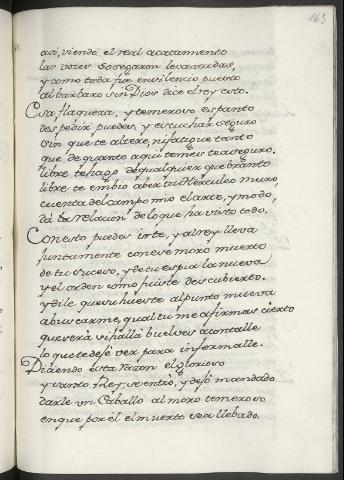 163
así, viendo el real acatamiento
las vozes sosegaron levantadas,
y como toda fue en silencio puesto
al barbaro sin Dios dice el rey esto.
Esa flaqueza, y temeroso espanto
despedir puedes, y escuchar seguro
sin que te altere, ni fatigue tanto
que de quanto aqui temeis te aseguro.
libre te hago de qualquier quebranto
libre te embio a ber tu Herculeo muro,
cuenta del campo mio el arte, y modo,
dá la relacion de lo que ha visto todo.
Con esto puedes irte, y al rey lleva
juntamente con ese moro muerto
de tu suceso, y de tu espia la nueva
y el orden como fuiste descubierto.
y dile que su hueste al punto mueva
a buscarme, qual tu me afirmas cierto
que verá si halla buelves a contalle
lo que te dejé ver para informalle.
Diciendo esta razon el glorioso
y santo Rey se entró, y dejó mandado
darle un Caballo al moro temeroso
en que por él el muerto sea llebado.